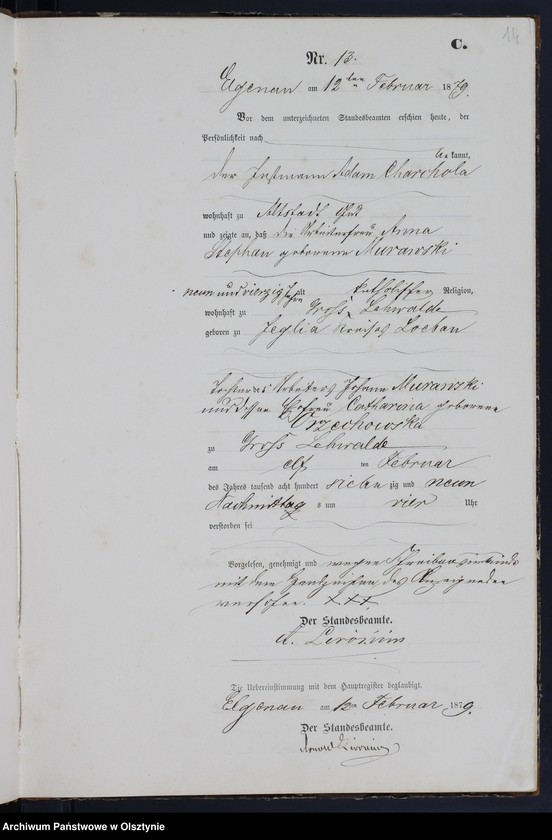 14
C.
Nr. 13.
Elgenau am 12ten Februar 1879.
Vor dem unterzeichneten Standesbeamten erschien heute, der
Persönlichkeit nach
be kannt,
der Instmann Adam Charchola
wohnhaft zu Altstadt Gut
und zeigte an, daß die Arbeiterfrau Anna
Stephan geborene Murawski
neun und vierzig Jahre alt katholischer Religion,
wohnhaft zu Gross Lehwalde
geboren zu Jeglia Kreises Loebau
Tochter des Arbeiters Johann Murawski
und dessen Ehefrau Catharina geborene
Orzechowska
zu Gross Lehwalde
am elf ten Februar
des Jahres tausend acht hundert sieben zig und neun
Nachmittag s um vier Uhr
verstorben sei
Vorgelesen, genehmigt und wegen Schreibensunkunde
mit dem Handzeichen des Anzeigenden
versehen. XXX
Der Standesbeamte.
A.
Die Uebereinstimmung mit dem Hauptregister beglaubigt.
Elgenau am 12ten Februar 1879.
Der Standesbeamte.
Archiwum Państwowe w Olsztynie